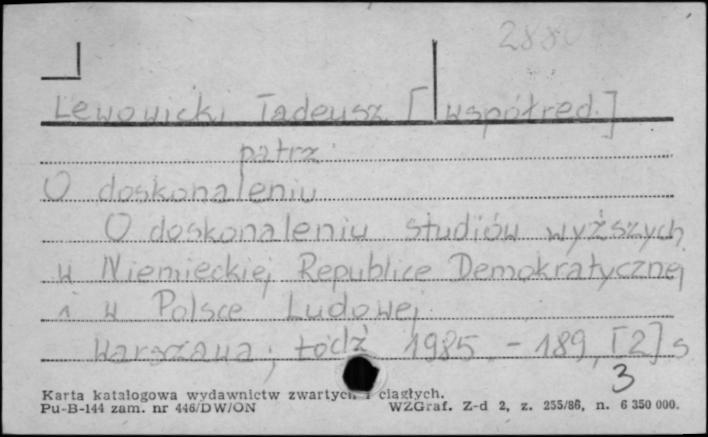 2880
Lewowicki Tadeusz [współred.]
patrz
O doskonaleniu
O doskonaleniu studiów wyższych
w Niemieckiej Republice Demokratycznej
i w Polsce Ludowej
Warszawa; Łódź 1985. - 189, [2] s
3
Karta katalogowa wydawnictw zwartych i ciągłych.
Pu-B-144 zam. nr 446/DW/ON WZGraf. Z-d 2, z. 255/86, n. 6 350 000.